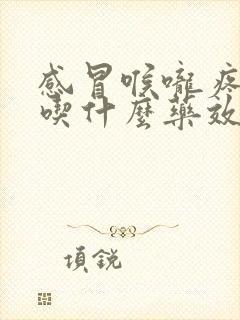 感冒喉嚨疼
喫什麼藥效
項銳